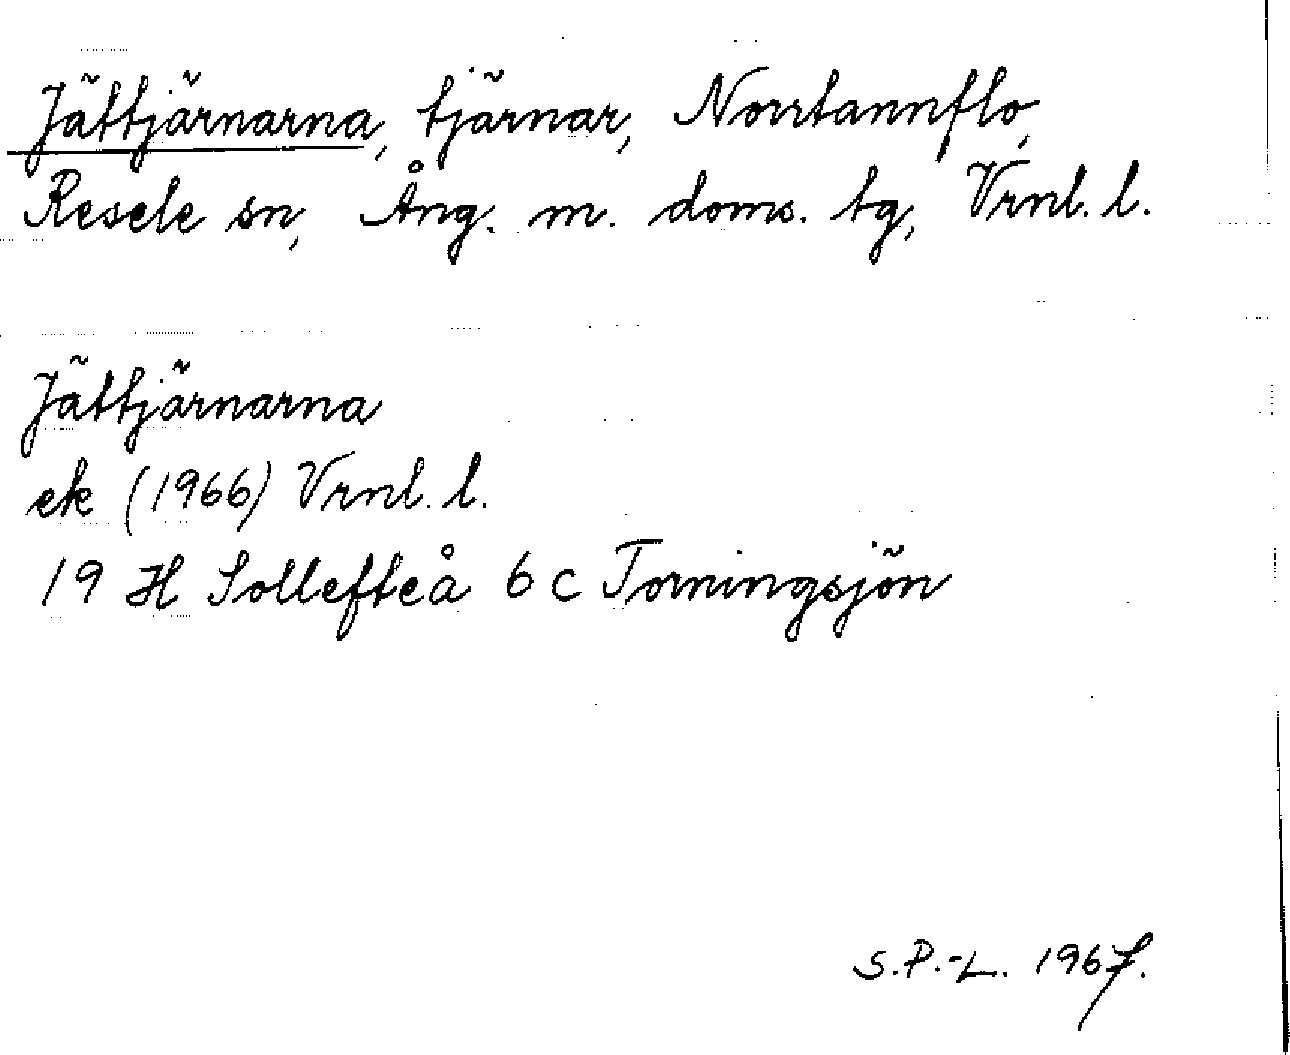 Jättjärnarna, tjärnar, Norrtannflo,
Resele sn, Ång. m. doms. tg, Vrnl. l.
Jättjärnarna
ek (1966) Vrnl. l.
19 H Sollefteå 6 c Torningsjön
S.P.-L. 1967.